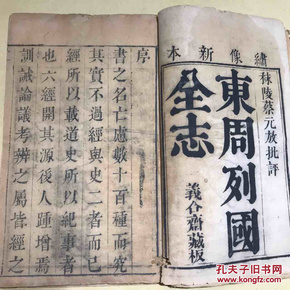 繡像新本
秣陵蔡元放批評
東周列國
全志
義合齋藏板
序
書之名亡慮數十百種而究
其實不過經與史二者而已
經所以載道史所以紀事者
也六經開其源後人踵增焉
訓誡論議考辨之屬皆經之
孔夫子旧书网